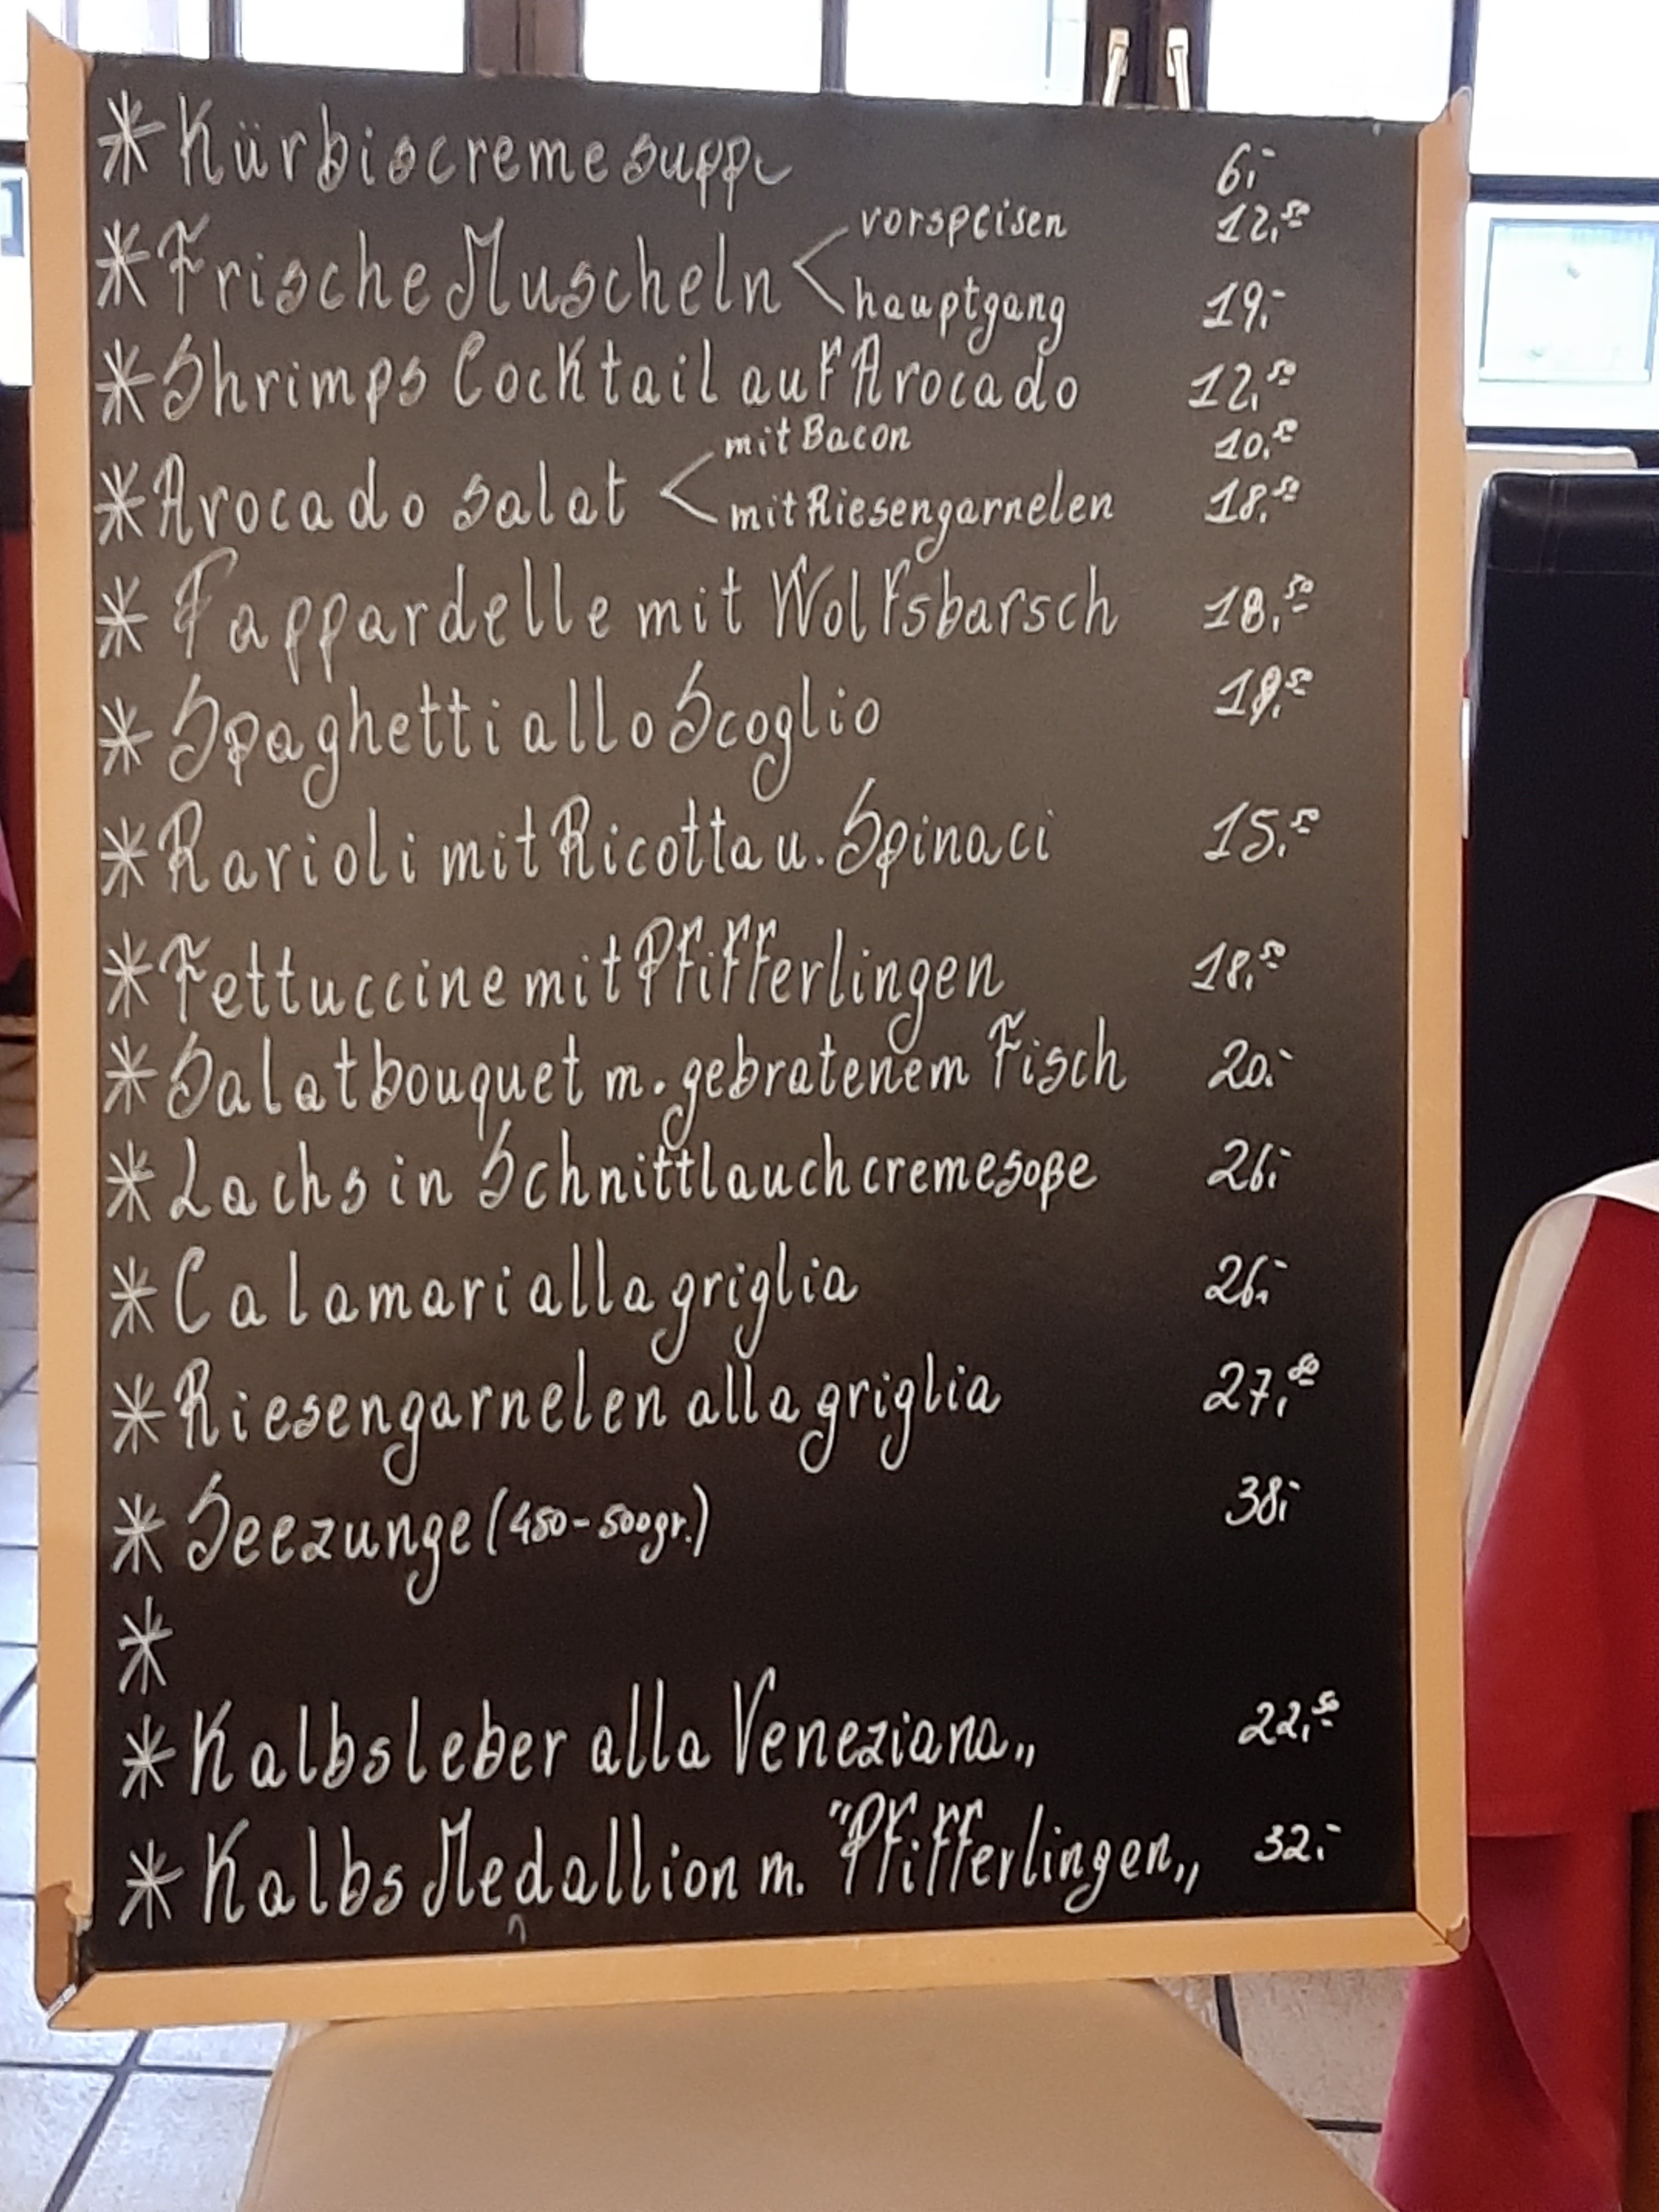 * Kürbiscremesuppe 6,-
* Frische Muscheln < vorspeisen 12,50
hauptgang 19,-
* Shrimps Cocktail auf Avocado 12,50
* Avocado salat < mit Bacon 10,50
mit Riesengarnelen 18,50
* Pappardelle mit Wolfsbarsch 18,50
* Spaghetti allo Scoglio
* Ravioli mit Ricotta u. Spinaci 15,50
* Fettuccine mit Pfifferlingen 18,50
* Salatbouquet m. gebratenem Fisch 20.-
* Lachs in Schnittlauchcremesoße 26,-
* Calamari alla griglia 26,-
* Riesengarnelen alla griglia 27,80
* Seezunge (450-500gr.) 38,-
*
* Kalbsleber alla Veneziana„ 22,50
* Kalbs Medallion m. "Pfifferlingen„ 32.-